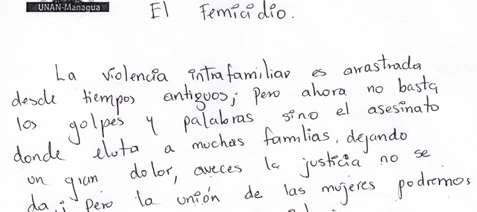 UNAN-Managua
El Femicidio.
La violencia intrafamiliar es arrastrada
desde tiempos antiguos; pero ahora no basta
los golpes y palabras sino el asesinato
donde eluta a muchas familias, dejando
un gran dolor, aveces la justicia no se
da; pero la unión de las mujeres podremos